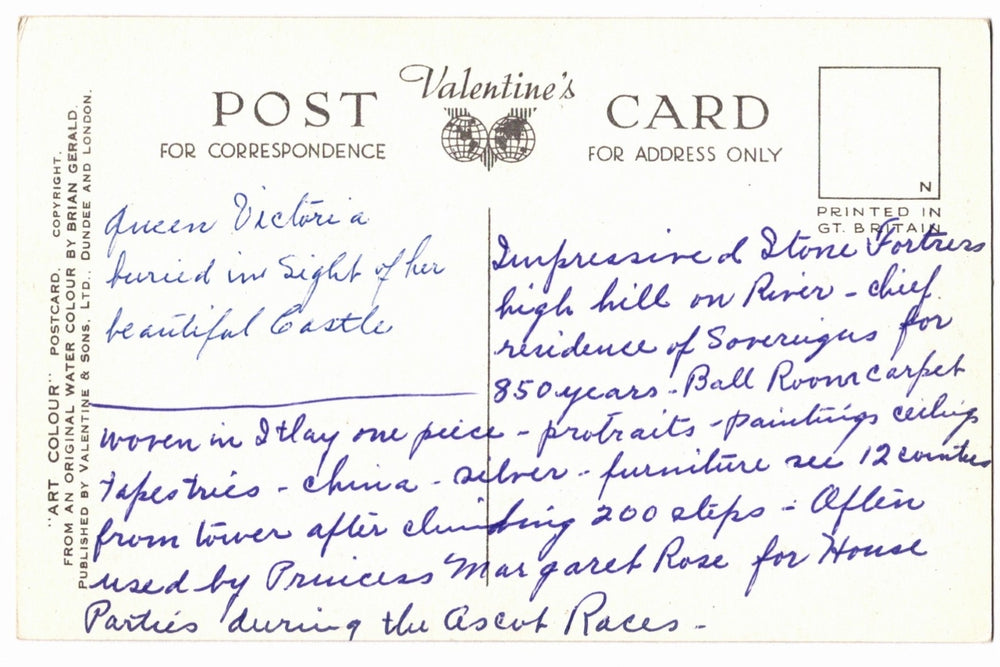 Valentine's
POST CARD
FOR CORRESPONDENCE
FOR ADDRESS ONLY
N
PRINTED IN
GT. BRITAIN
"ART COLOUR" POSTCARD. COPYRIGHT.
FROM AN ORIGINAL WATER COLOUR BY BRIAN GERALD.
PUBLISHED BY VALENTINE & SONS, LTD., DUNDEE AND LONDON.
Queen Victoria
buried in Sight of her
beautiful Castle
Impressive Stone Fortress
high hill on River - chief
residence of Sovereigns for
850 years - Ball Room carpet
woven in Italy one piece - protraits - paintings ceilings
Tapestries - china - silver - furniture see 12 counties
from tower after climbing 200 steps - Often
used by Princess Margaret Rose for House
Parties during the Ascot Races -